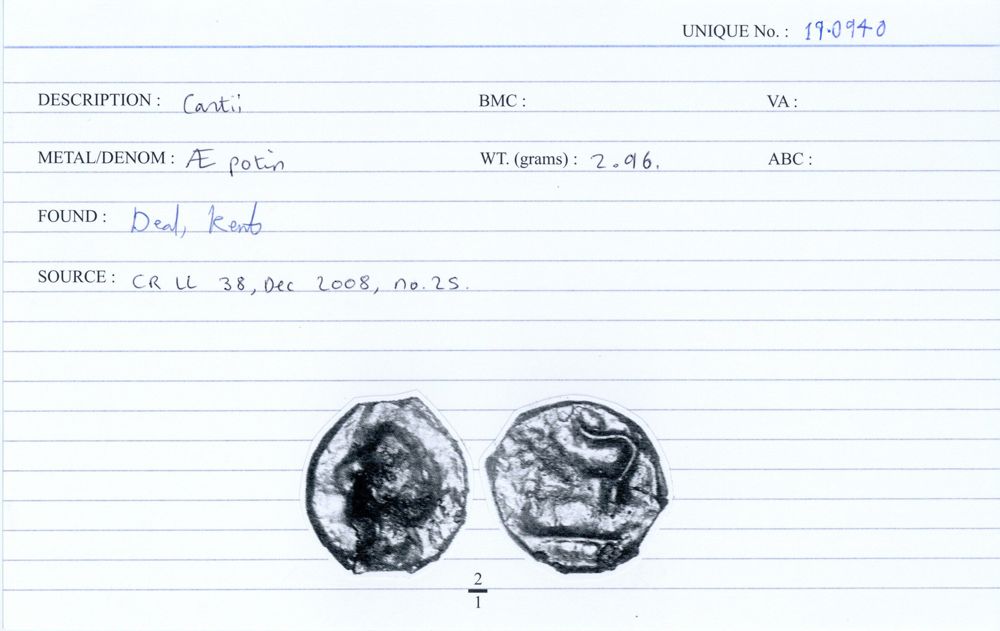 UNIQUE No. : 19.0940
DESCRIPTION : Cantii BMC : VA :
METAL/DENOM : Æ potin WT. (grams) : 2.96. ABC :
FOUND : Deal, Kent
SOURCE : CR LL 38, Dec 2008, no. 25.
2
1